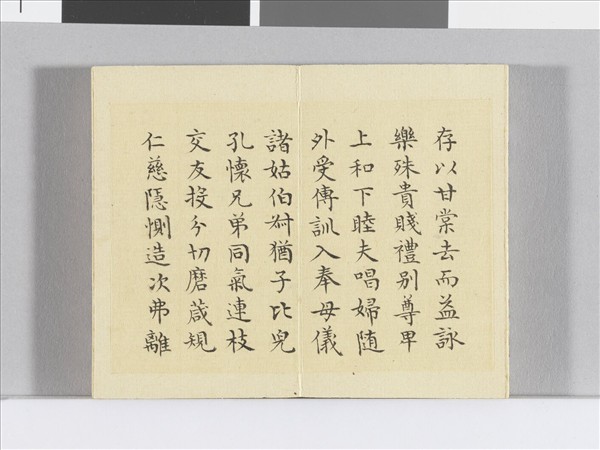 存以甘棠去而益詠
樂殊貴賤禮別尊卑
上和下睦夫唱婦随
外受傅訓入奉母儀
諸姑伯叔猶子比兒
孔懷兄弟同氣連枝
交友投分切磨箴規
仁慈隱惻造次弗離